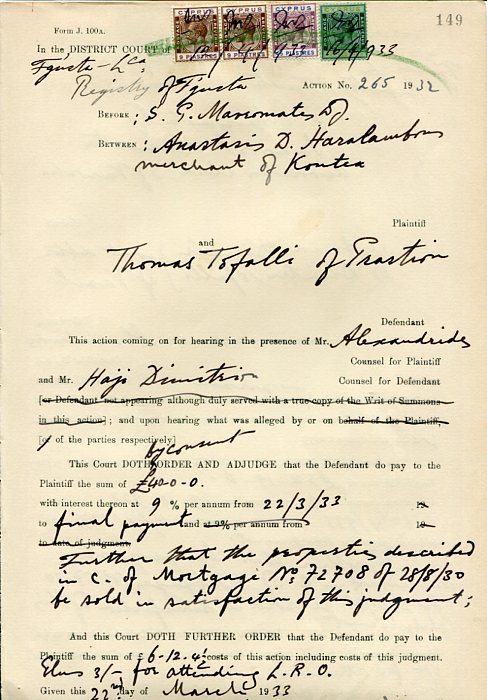 149
Form J. 100A.
CYPRUS CYPRUS CYPRUS CYPRUS
9 PIASTRES 9 PIASTRES PIASTRES
In the DISTRICT COURT of
Fgusta - Lca
Registry of Fgusta
ACTION No. 265 1932
BEFORE : S. G. Mavromates DJ.
BETWEEN : Anastasis D. Haralambous
merchant of Kontea
Plaintiff
and
Thomas Tofalli of Prastion
Defendant
This action coming on for hearing in the presence of Mr. Alexandrides
Counsel for Plaintiff
and Mr. Haji Dimitriou Counsel for Defendant
[or Defendant not appearing although duly served with a true copy of the Writ of Summons
in this action]; and upon hearing what was alleged by or on behalf of the Plaintiff,
[or of the parties respectively]
by consent
This Court DOTH ORDER AND ADJUDGE that the Defendant do pay to the
Plaintiff the sum of £40-0-0.
with interest thereon at 9 % per annum from 22/3/33 19
to final payment and at 9% per annum from 19
to date of judgment
Further that the properties described
in C. of Mortgage No. 72708 of 28/8/30
be sold in satisfaction of this judgment;
And this Court DOTH FURTHER ORDER that the Defendant do pay to the
Plaintiff the sum of £6-12-4½ costs of this action including costs of this judgment.
plus 3/- for attending L.R.O.
Given this 22nd day of March 1933